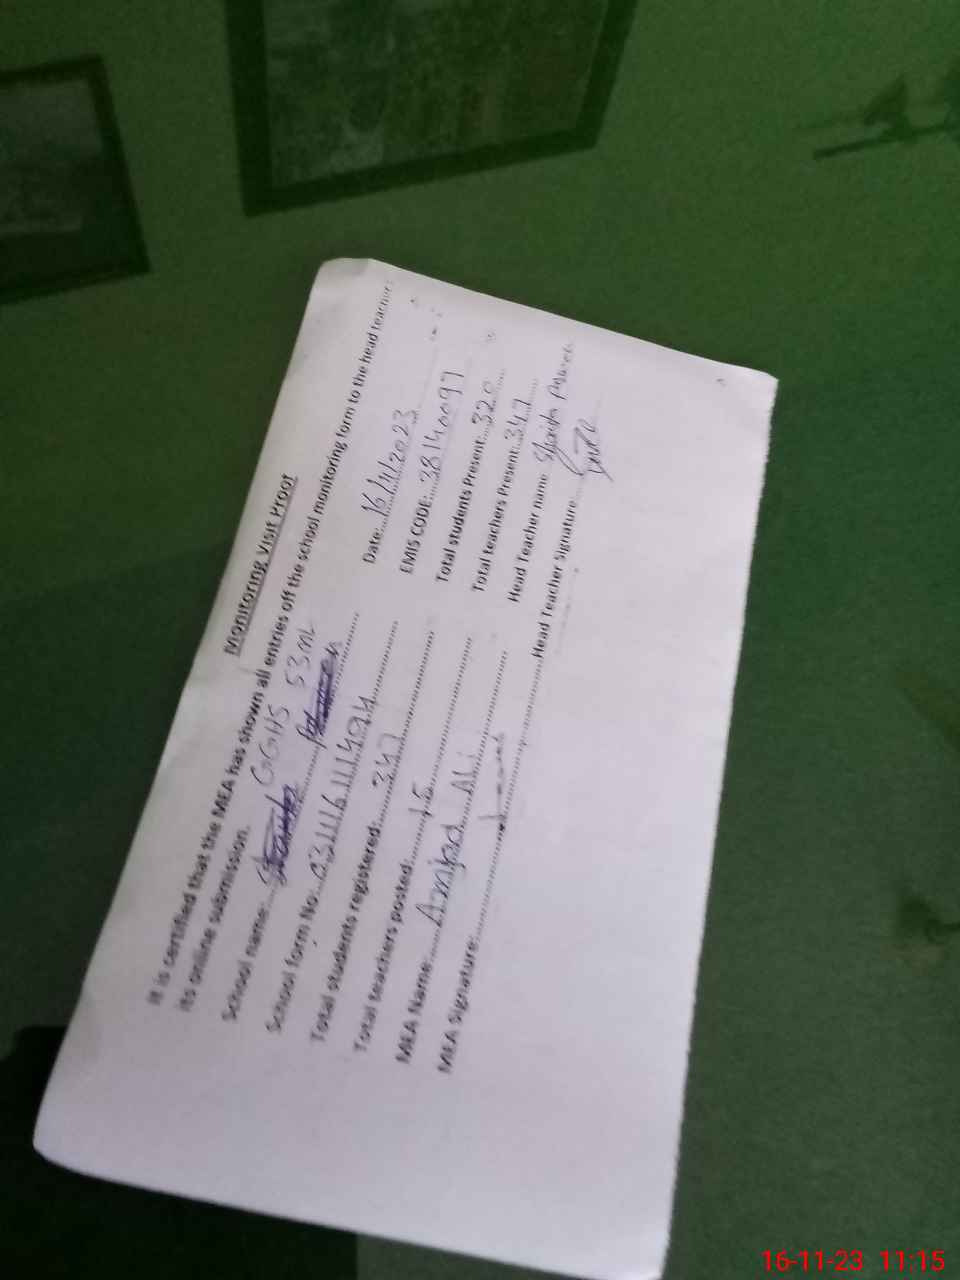 Monitoring Visit Proof
It is certified that the MEA has shown all entries off the school monitoring form to the head teacher
its online submission.
School name: GGHS 53 ML
Date: 16/11/2023
School form No:
EMIS CODE: 38140097
Total students registered: 347
Total students Present: 320
Total teachers posted: 15
Total teachers Present: 347
MEA Name: Amjad Ali
Head Teacher name
MEA Signature:
Head Teacher Signature
16-11-23 11:15